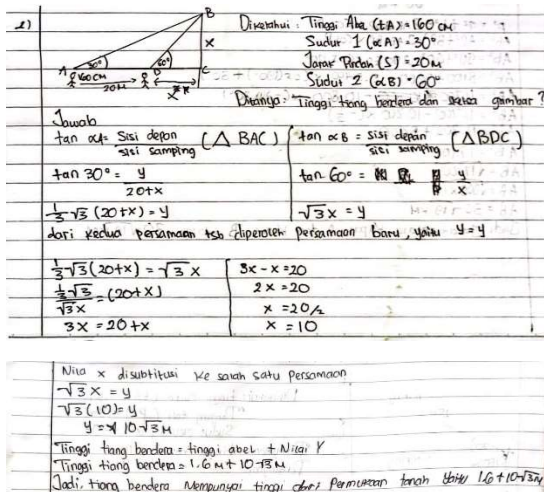 2)
B
Diketahui : Tinggi Abe (tA) = 160 cm
x
Sudut 1 (∝A) = 30°
30° 60°
A D C
Jarak Pindah (S) = 20 M
160 cm
20M
x
Sudut 2 (∝B) = 60°
Ditanya : Tinggi tiang bendera dan sketsa gambar ?
Jawab
tan ∝A = Sisi depan / sisi samping (△ BAC)
tan 30° = y / 20+x
1/3 √3 (20+x) = y
tan ∝B = sisi depan / sisi samping (△BDC)
tan 60° = y / x
√3 x = y
dari kedua persamaan tsb diperoleh persamaan baru, yaitu y = y
1/3 √3 (20+x) = √3 x
1/3 √3 / √3x = (20+x)
3x = 20+x
3x - x = 20
2x = 20
x = 20/2
x = 10
Nilai x disubtitusi ke salah satu Persamaan
√3 x = y
√3 (10) = y
y = 10√3 M
Tinggi tiang bendera = tinggi abel + Nilai Y
Tinggi tiang bendera = 1.6 M + 10√3 M
Jadi, tiang bendera Mempunyai tinggi dari Permukaan tanah Yaitu 1.6 + 10√3 M